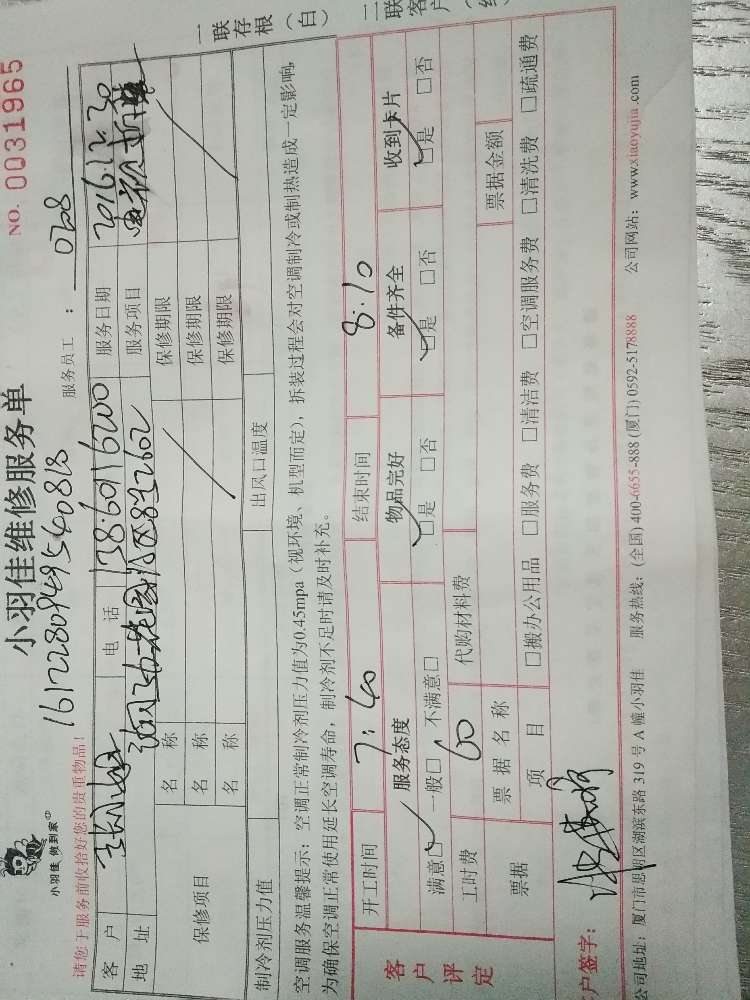 小羽佳 做到家
小羽佳维修服务单
NO. 0031965
16122809495408B
请您于服务前收拾好您的贵重物品!
服务员工: 0728
客户 电话 服务日期 2016.12.30
地址 服务项目
保修项目
名称 保修期限
名称 保修期限
名称 保修期限
制冷剂压力值 出风口温度
空调服务温馨提示:空调正常制冷剂压力值为0.45mpa(视环境、机型而定),拆装过程会对空调制冷或制热造成一定影响,
为确保空调正常使用延长空调寿命,制冷剂不足时请及时补充。
开工时间 7:40 结束时间 8:10
客户评定
服务态度 物品完好 备件齐全 收到卡片
满意□ 一般□ 不满意□ □是 □否 □是 □否 □是 □否
工时费 60 代购材料费
票据 票据名称 票据金额
项目 □搬办公用品 □服务费 □清洁费 □空调服务费 □清洗费 □疏通费
户签字:
公司地址:厦门市思明区湖滨东路 319 号 A 幢小羽佳 服务热线:(全国) 400-6655-888 (厦门) 0592-5178888 公司网站:www.xiaoyujia.com
一联存根(白)
二联客户